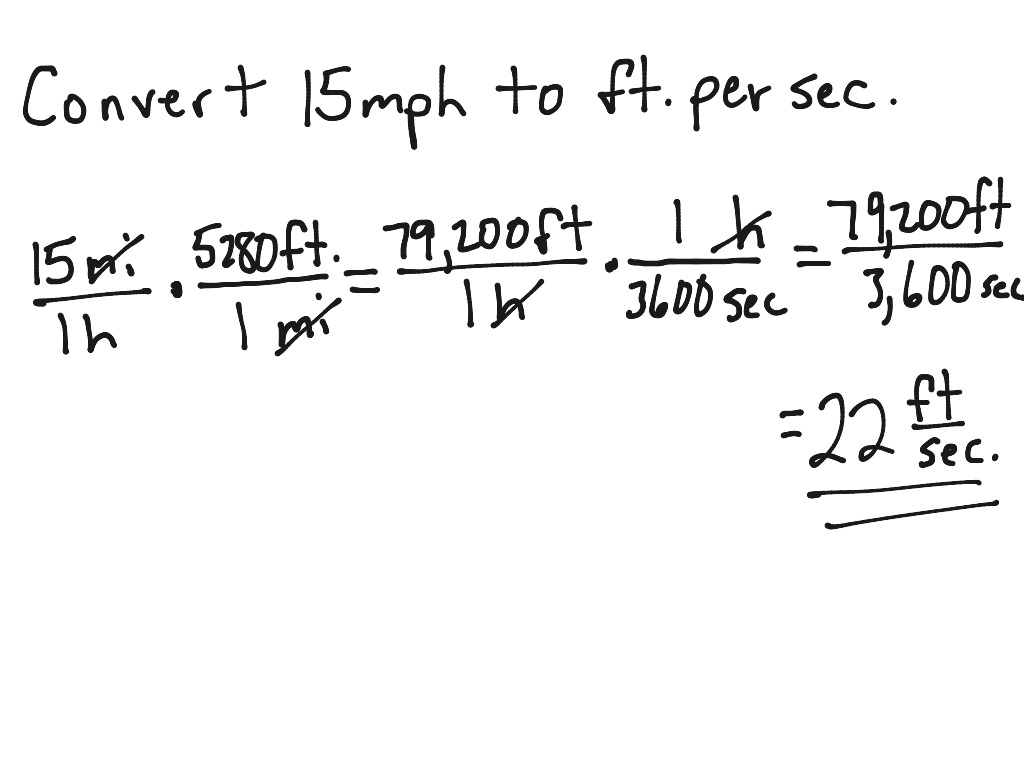 Convert 15mph to ft. per sec.
15 mi/1 h · 5280 ft./1 mi = 79,200 ft/1 h · 1 h/3600 sec = 79,200 ft/3,600 sec
= 22 ft/sec.